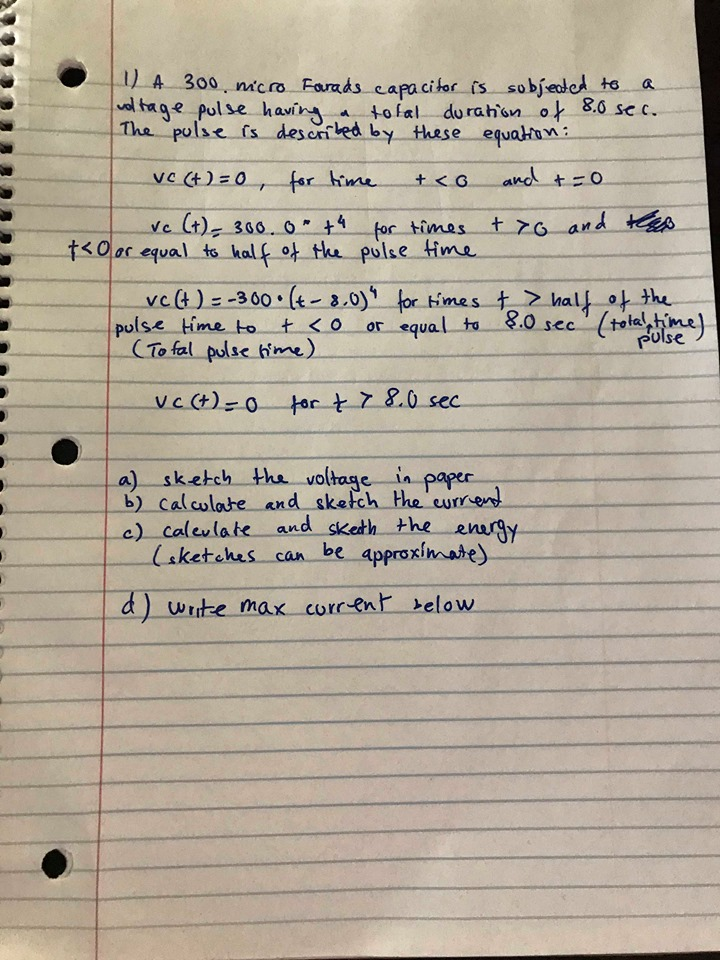 1) A 300. micro Farads capacitor is subjeated to a
voltage pulse having a total duration of 8.0 sec.
The pulse is described by these equation:
vc (t) = 0 , for time t < 0 and t = 0
vc (t) = 300.0 * t⁴ for times t > 0 and
t < 0 or equal to half of the pulse time
vc (t) = -300 • (t - 8.0)⁴ for times t > half of the
pulse time to t < 0 or equal to 8.0 sec (total pulse time)
(Total pulse time)
vc (t) = 0 for t > 8.0 sec
a) sketch the voltage in paper
b) calculate and sketch the current
c) calculate and sketh the energy
(sketches can be approximate)
d) write max current below